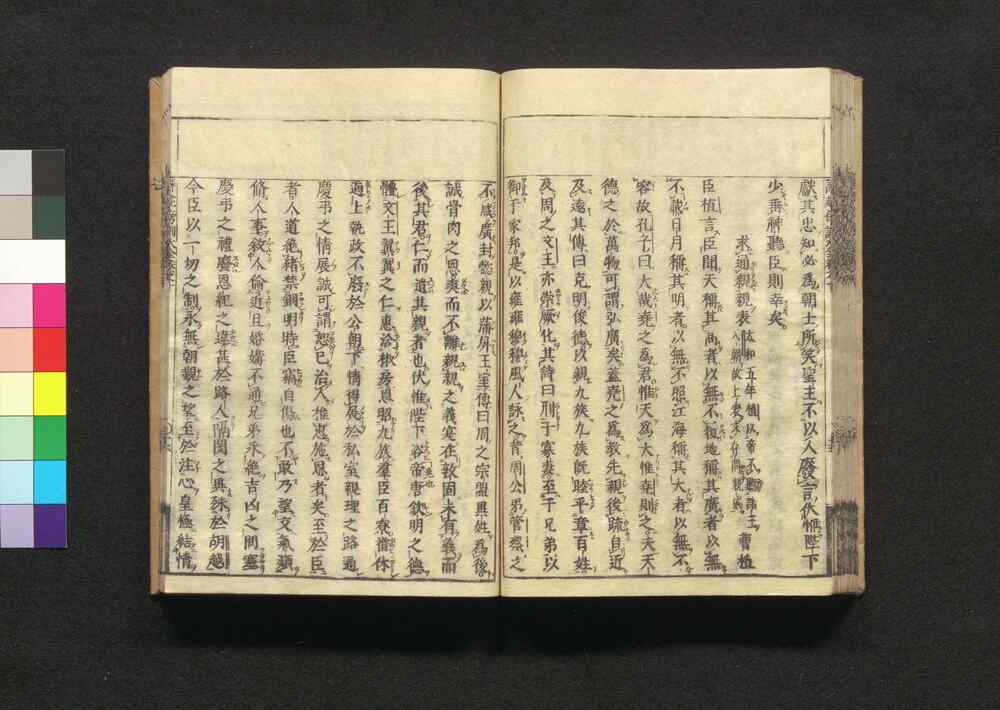 獻其忠知必爲朝士所笑聖主不以人廢言伏惟陛下
少垂神聽臣則幸矣
求通親親表
曹植
臣植言臣聞天稱其高者以無不覆地稱其廣者以無
不載日月稱其明者以無不照江海稱其大者以無不
容故孔子曰大哉堯之爲君惟天爲大惟堯則之夫天
德之於萬物可謂弘廣矣蓋堯之爲教先親後疏自近
及遠其傳曰克明俊德以親九族九族既睦平章百姓
及周之文王亦崇厥化其詩曰刑于寡妻至于兄弟以
御于家邦是以雍雍穆穆風人詠之昔周公弔管蔡之
不咸廣封懿親以藩屏王室傳曰周之宗盟異姓爲後
誠骨肉之恩爽而不離親親之義寔在敦固未有義而
後其君仁而遺其親者也伏惟陛下資帝唐欽明之德
體文王翼翼之仁惠洽椒房恩昭九族羣臣百寮番休
遞上執政不廢於公朝下情得展於私室親理之路通
慶弔之情展誠可謂恕己治人推惠施恩者矣至於臣
者人道絶緒禁錮明時臣竊自傷也不敢乃望交氣類
脩人事敘人倫近且婚媾不通兄弟永絶吉凶之問塞
慶弔之禮廢恩紀之違甚於路人隔閡之異殊於胡越
今臣以一切之制永無朝覲之望至於注心皇極結情